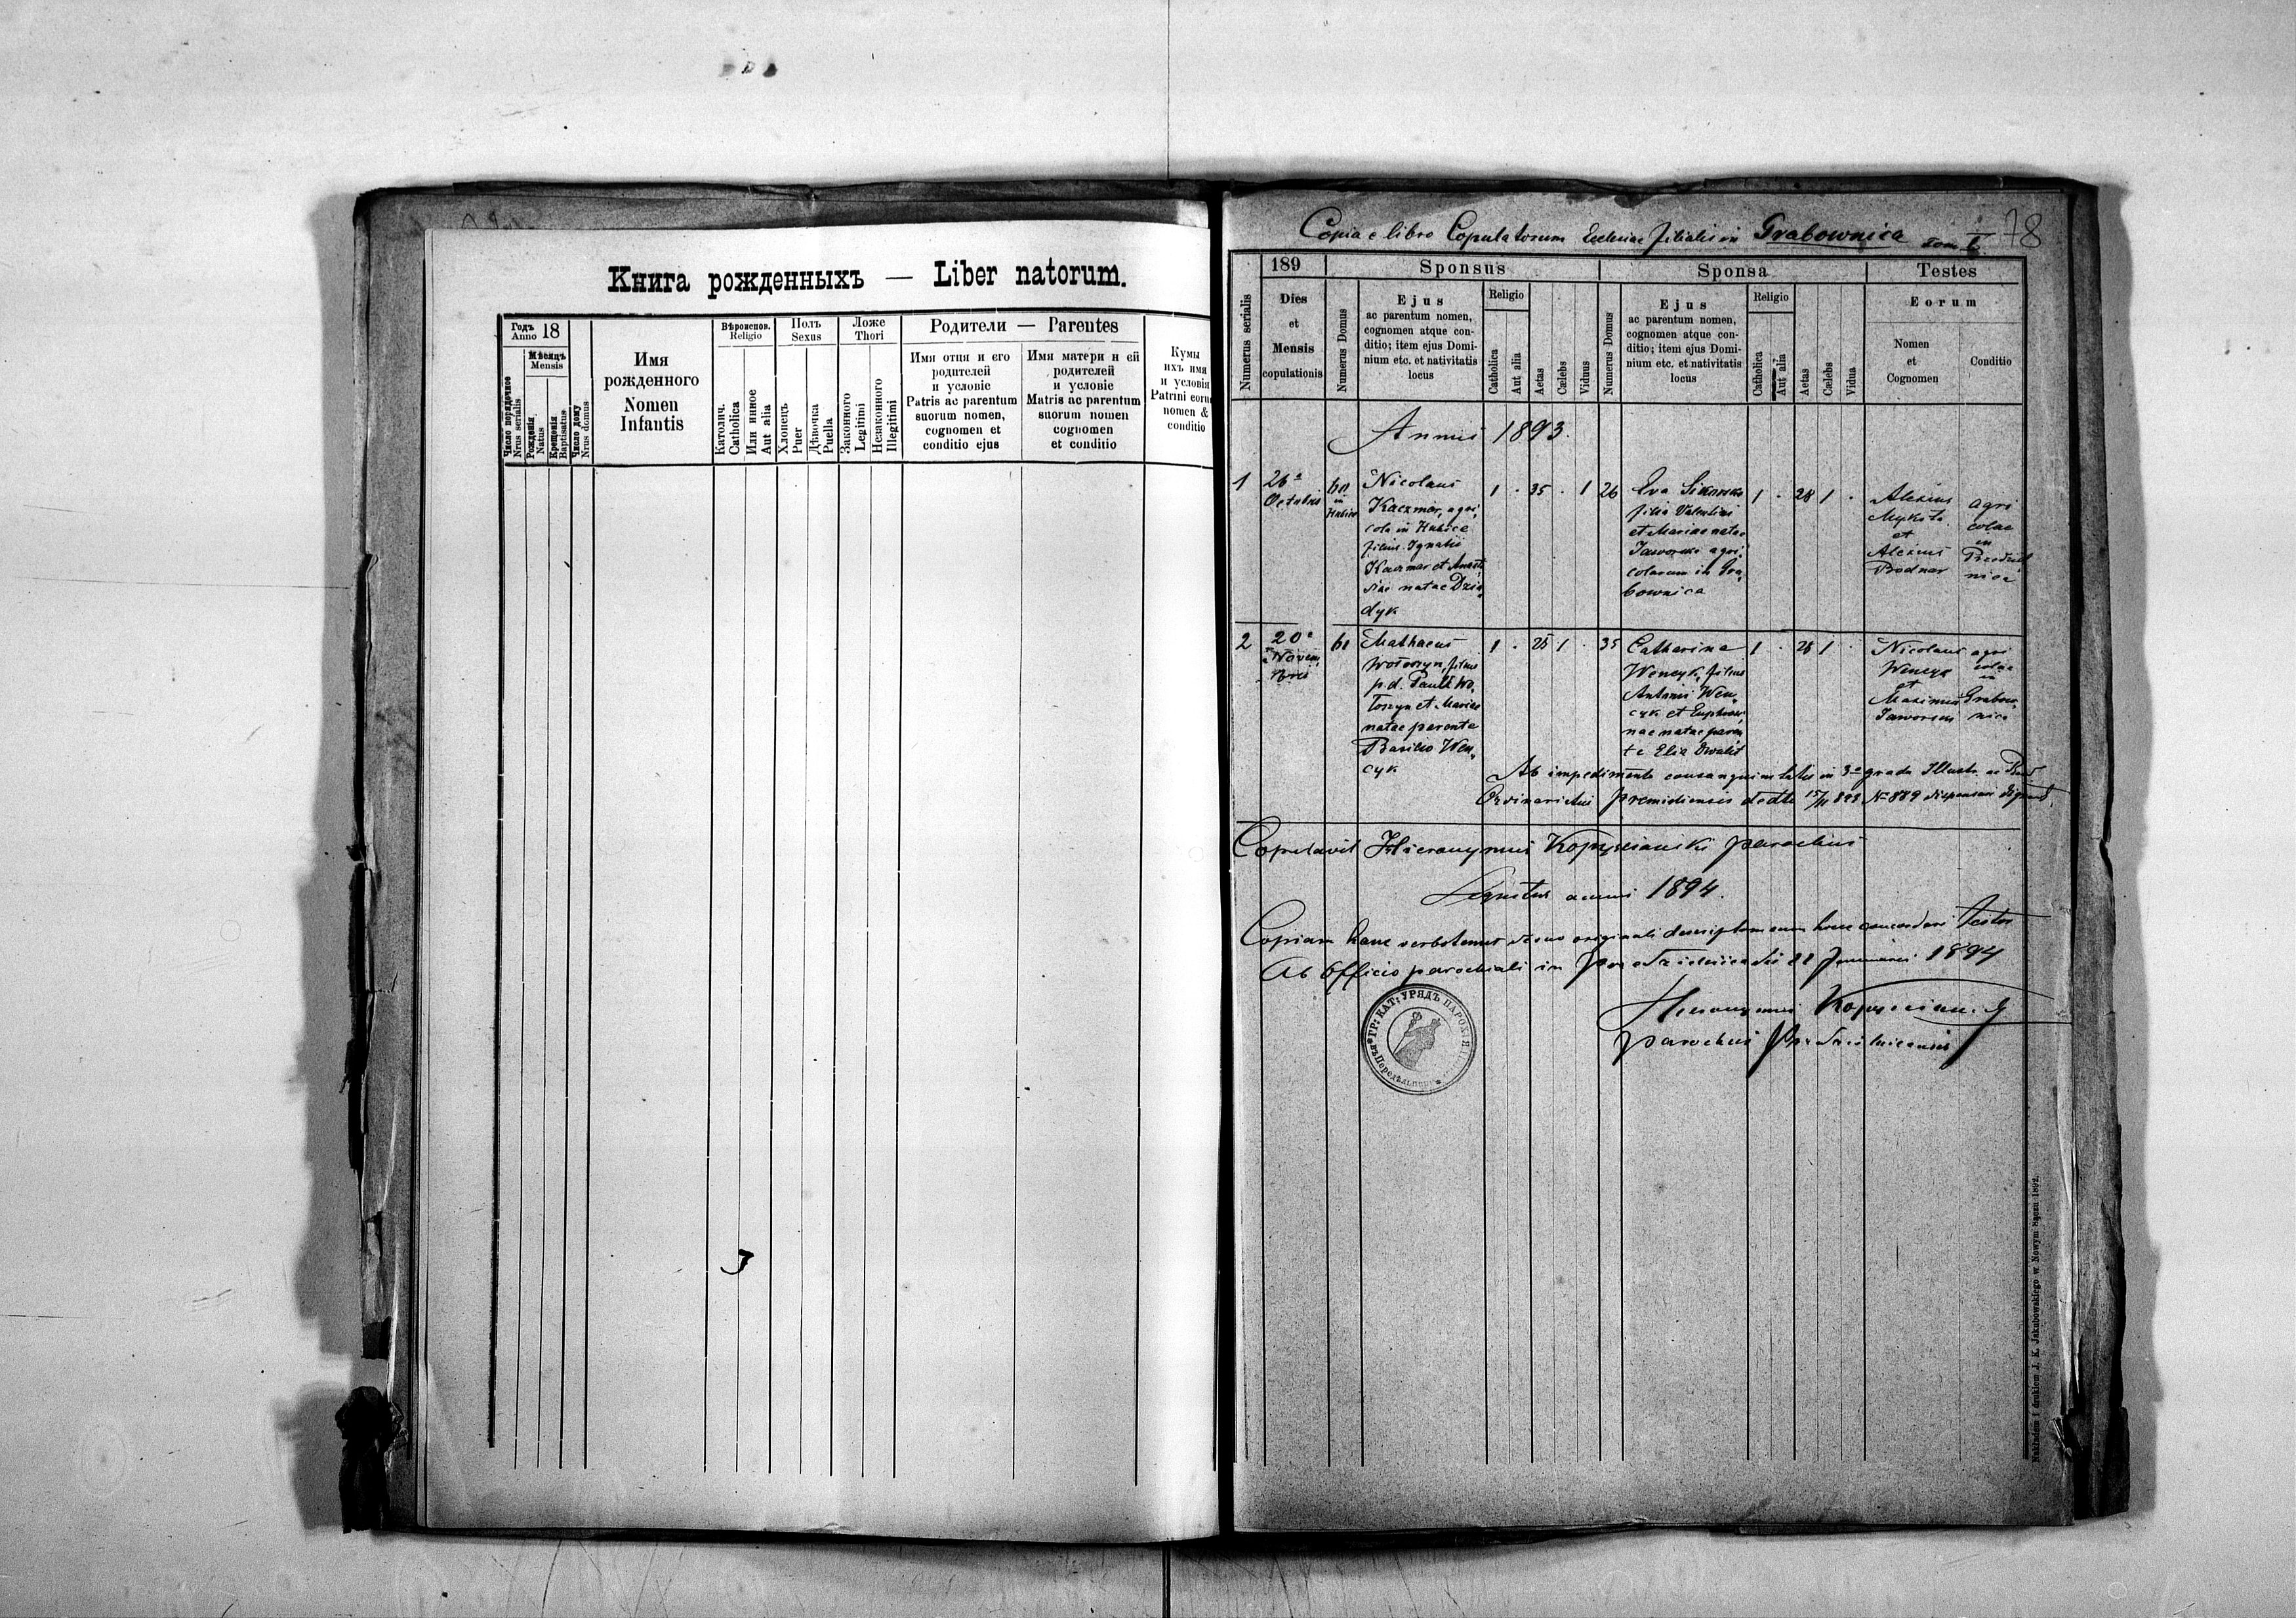 Книга рожденныхъ — Liber natorum.
Годъ
Anno 18
Мѣсяцъ
Mensis
Число порядочное
Nrus serialis
Рожденія
Natus
Крещенія
Baptisatus
Число дому
Nrus domus
Имя
рожденного
Nomen
Infantis
Вѣроиспов.
Religio
Католич.
Catholica
Или инное
Aut alia
Полъ
Sexus
Хлопецъ
Puer
Дѣвочка
Puella
Ложе
Thori
Законного
Legitimi
Незаконного
Illegitimi
Родители — Parentes
Имя отця и его
родителей
и условіе
Patris ac parentum
suorum nomen,
cognomen et
conditio ejus
Имя матери и ей
родителей
и условіе
Matris ac parentum
suorum nomen
cognomen
et conditio
Кумы
ихъ имя
и условія
Patrini eoru
nomen &
conditio
Copia e libro Copulatorum Ecclesiae filialis in Grabownica Tom. I
78
Numerus serialis
189
Dies
et
Mensis
copulationis
Sponsus
Numerus Domus
Ejus
ac parentum nomen,
cognomen atque con-
ditio; item ejus Domi-
nium etc. et nativitatis
locus
Religio
Catholica
Aut alia
Aetas
Cælebs
Viduus
Sponsa
Numerus Domus
Ejus
ac parentum nomen,
cognomen atque con-
ditio; item ejus Domi-
nium etc. et nativitatis
locus
Religio
Catholica
Aut alia
Aetas
Cælebs
Vidua
Testes
Eorum
Nomen
et
Cognomen
Conditio
Annus 1893.
1
26a
Octobris
in
Hubice
Nicolaus
Kaczmar, agri,
cola in Hubice
filius Ignatii
Kaczmar et Anasta
siae natae Dzia
dyk
1 . 35 . 1
26
Eva Sikorska
filia Valentini
et Mariae natae
Jaworski agri,
colarum in Gra,
bownica
1 . 28 1 .
Alexius
Mykita
et
Alexius
Bodnar
agri
colae
in
nica
2
20a
Novem,
bris
61
Mathaeus
Wołoszyn, filius
p.d. Pauli Wo,
łoszyn et Mariae
natae parente
Basilio Wen,
cyk
1 . 25 1 .
35
Catharina
Wencyk, filius
Antonii Wen,
cyk et Euphrosi,
nae natae paren
te Elia
1 . 28 1 .
Nicolaus
Wencyk
et
Maximus
Jaworski
agri
colae
in
Grabow,
nica
Ab impedimento consanguinitatis in 3o gradu Illustr. ac Rmd
Ordinariatus Premisliensis dedto 15/11 893 No 889 dispensare dignatus
Copulavit Hieronymus Kopyscianski parochus
Sequitur annus 1894.
Copiam hanc verbotenus e suo originali descriptam cum hoce concordare testor
Ab Officio parochiali in die 22 Januarii 1894
Hieronymus Kopyscianski
parochus
ГР: КАТ: УРЯДЪ ПАРОХ:
Nakładem i drukiem J. K. Jakubowskiego w Nowym Sączu 1892.